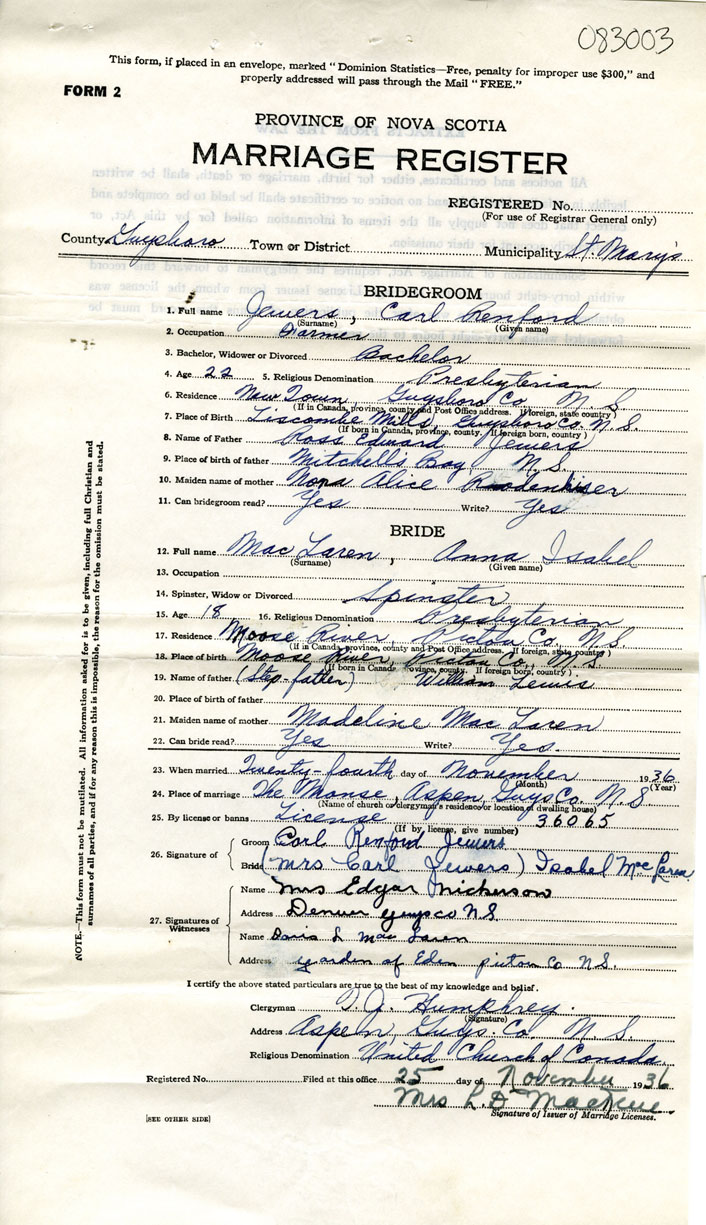 083003
This form, if placed in an envelope, marked "Dominion Statistics—Free, penalty for improper use $300," and
properly addressed will pass through the Mail "FREE."
FORM 2
PROVINCE OF NOVA SCOTIA
MARRIAGE REGISTER
REGISTERED No.
(For use of Registrar General only)
County Guysboro Town or District Municipality St. Mary's
BRIDEGROOM
1. Full name Jewers, Carl Renford
(Surname) (Given name)
2. Occupation Farmer
3. Bachelor, Widower or Divorced Bachelor
4. Age 22 5. Religious Denomination Presbyterian
6. Residence New Town, Guysboro Co N. S
(If in Canada, province, county and Post Office address. If foreign, state country)
7. Place of Birth Liscombe Mills, Guysboro Co. N. S.
(If born in Canada, province, county. If foreign born, country)
8. Name of Father Ross Edward Jewers
9. Place of birth of father Mitchells Bay N. S.
10. Maiden name of mother Nora Alice Roodenhiser
11. Can bridegroom read? Yes Write? Yes
BRIDE
12. Full name Mac Laren, Anna Isabel
(Surname) (Given name)
13. Occupation
14. Spinster, Widow or Divorced Spinster
15. Age 18 16. Religious Denomination Presbyterian
17. Residence Moose River, Pictou Co., N. S.
(If in Canada, province, county and Post Office address. If foreign, state country)
18. Place of birth Moose River, Pictou Co., N. S.
(If born in Canada, province, county. If foreign born, country)
19. Name of father (Step-father) William Lewis
20. Place of birth of father
21. Maiden name of mother Madeline Mac Laren
22. Can bride read? Yes Write? Yes.
23. When married Twenty-fourth day of November 1936
(Month) (Year)
24. Place of marriage The Manse, Aspen, Guys Co. N S
(Name of church or clergyman's residence or location of dwelling house)
25. By license or banns License 36065
(If by license, give number)
26. Signature of
Groom Carl Renford Jewers
Bride (Mrs Carl Jewers) Isabel McLaren
27. Signatures of Witnesses
Name Mrs Edgar Nickerson
Address Denver guysco N.S.
Name Doris L Mac Laren
Address garden of Eden pictou Co N.S.
I certify the above stated particulars are true to the best of my knowledge and belief.
Clergyman Humphrey.
(Signature)
Address Aspen Guys. Co N. S.
Religious Denomination United Church of Canada
Registered No. Filed at this office 25 day of November 1936
Mrs L. D.
Signature of Issuer of Marriage Licenses.
[SEE OTHER SIDE]
NOTE.—This form must not be mutilated. All information asked for is to be given, including full Christian and
surnames of all parties, and if for any reason this is impossible, the reason for the omission must be stated.